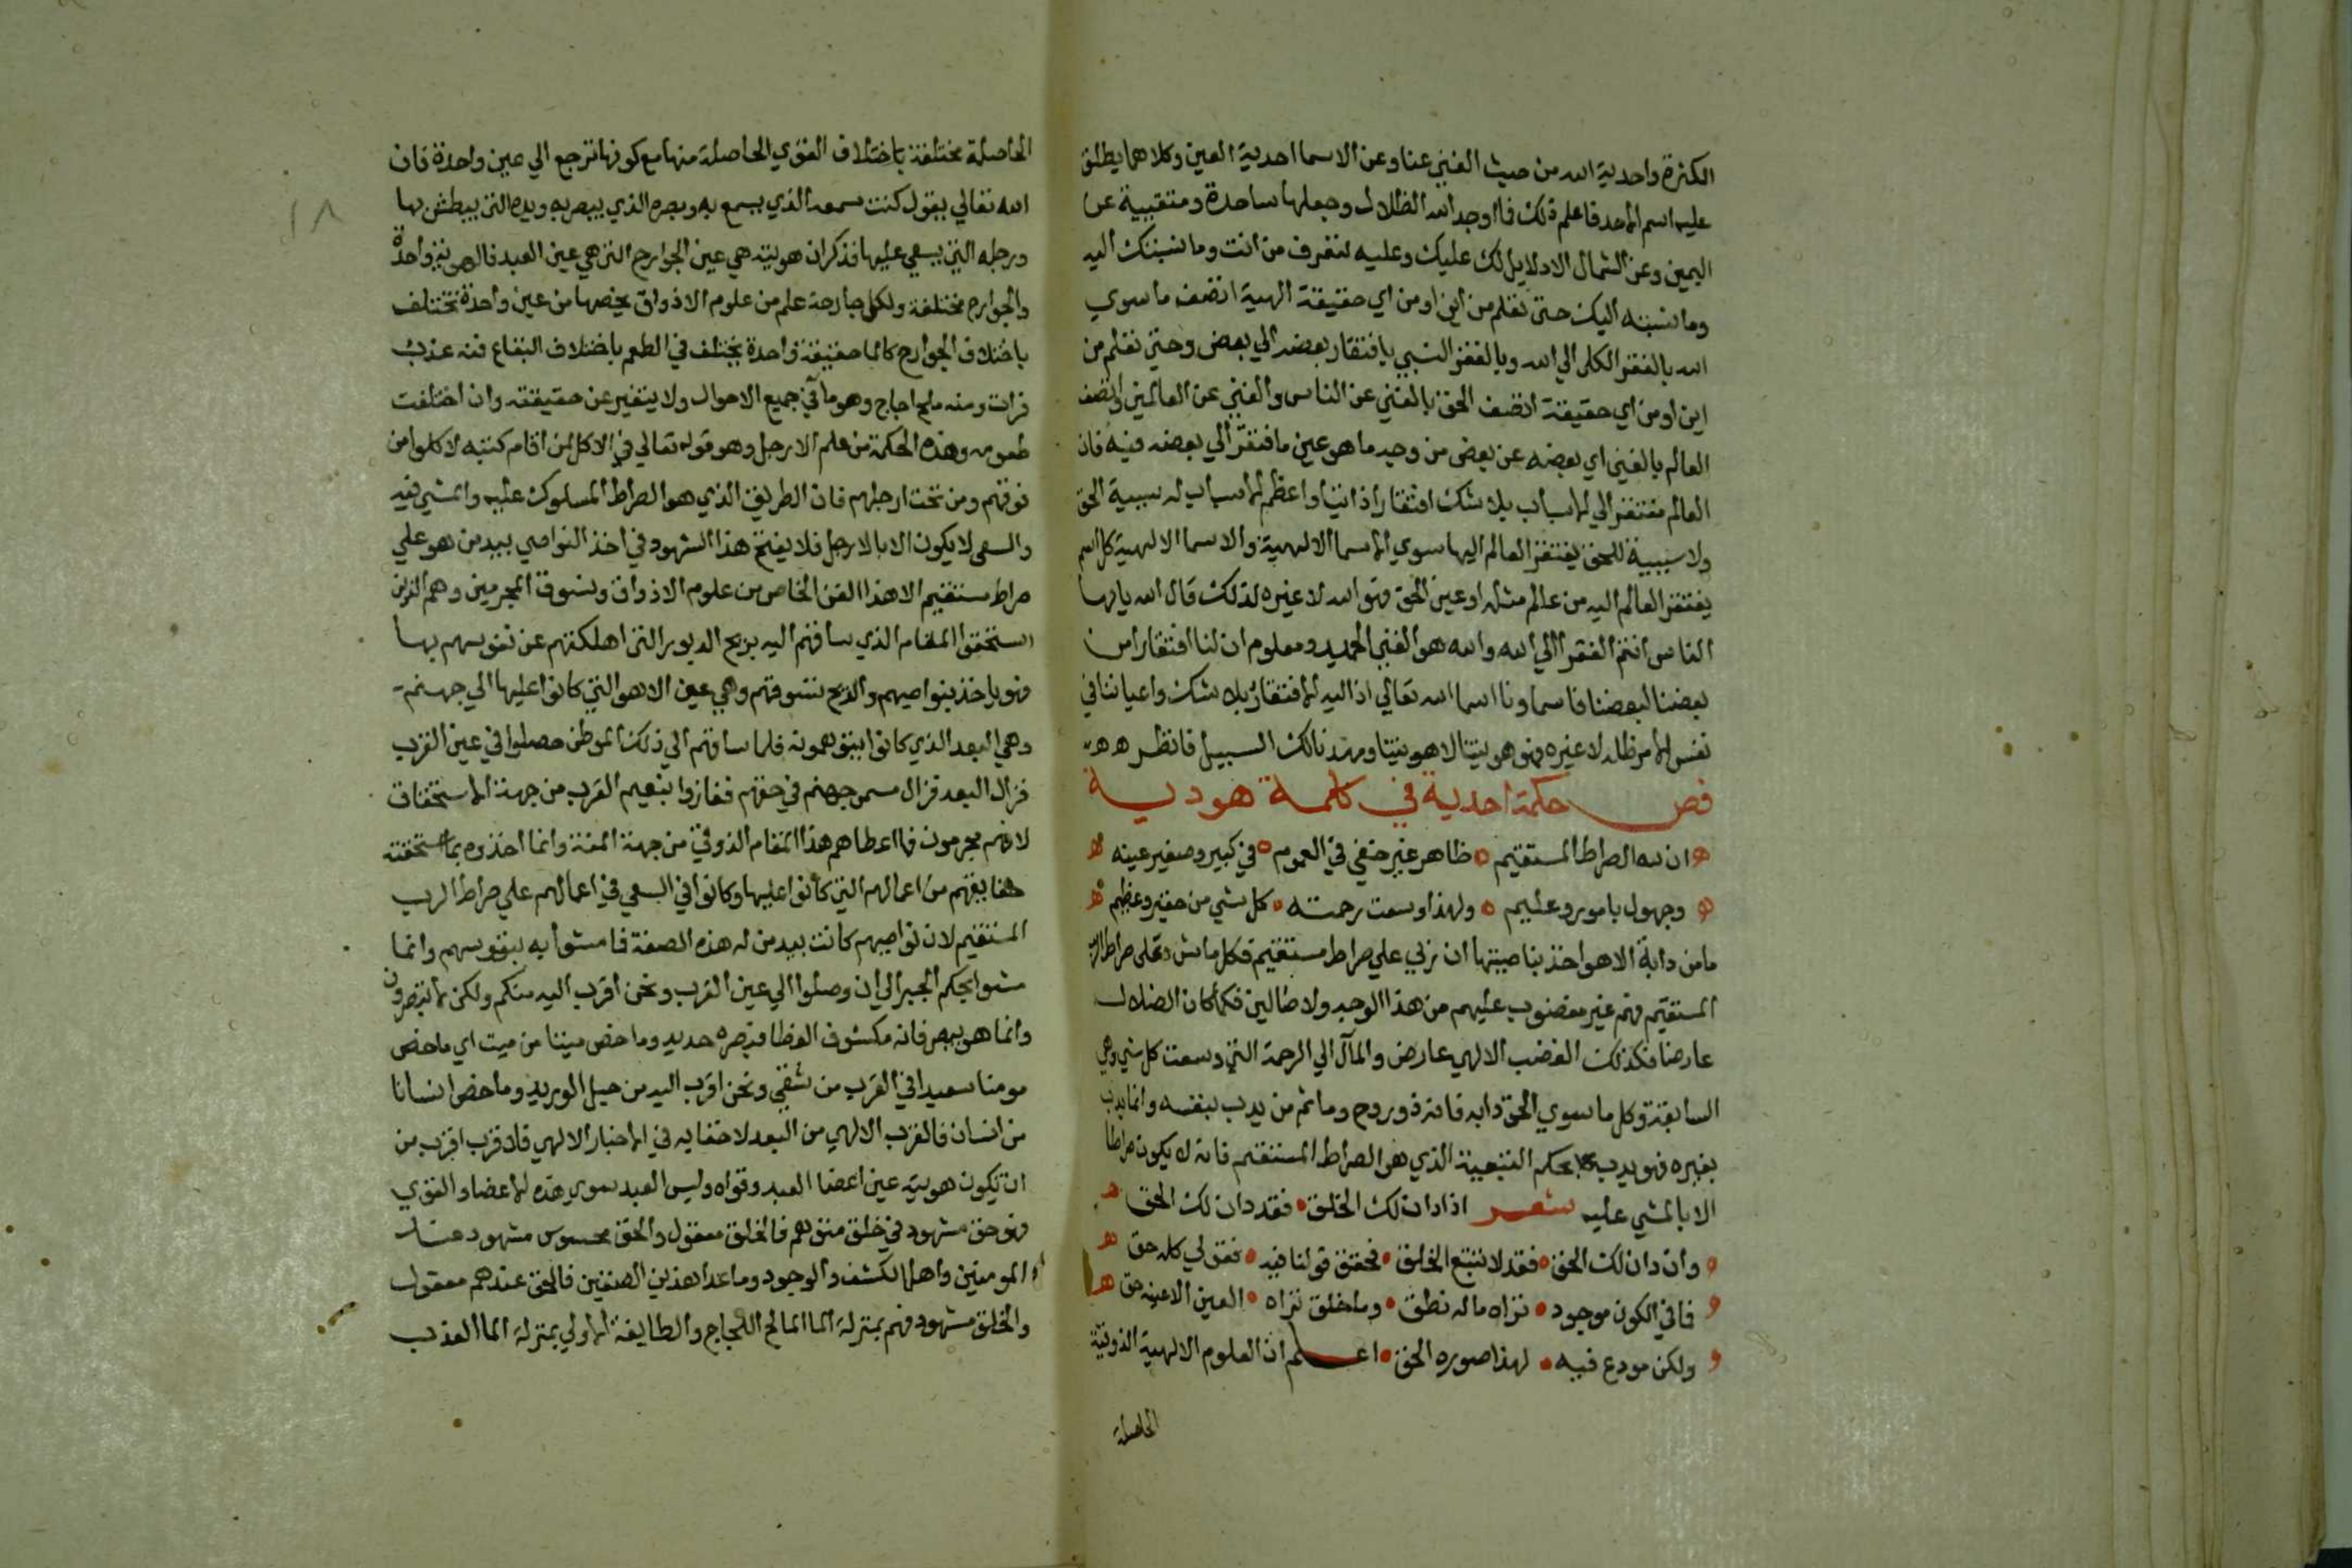 الكثرة واحدية الله من حيث الغني عنا وعن الاسما احدية العين وكلاهما يطلق
عليه اسم الاحد فاعلم ذلك فما اوجد الله الظلال وجعلها ساجدة ومتفيية عن
اليمين وعن الشمال الا دلايل لك عليك وعليه لتعرف من انت وما نسبتك اليه
وما نسبته اليك حتى تعلم من اين او من اي حقيقة الهية اتصف ما سوي
الله بالفقر الكلى الي الله وبالفقر النسبي بافتقار بعضه الي بعض وحتي تعلم من
اين او من اي حقيقة اتصف الحق بالغني عن الناس والغني عن العالمين واتصف
العالم بالغني اي بعضه عن بعض من وجه ما هو عين ما افتقر الي بعضه فيه فان
العالم مفتقر الي الاسباب بلا شك افتقارا ذاتيا واعظم الاسباب له سببية الحق
ولا سببية للحق يفتقر العالم اليها سوي الاسما الالهية والاسما الالهية كل اسم
يفتقر العالم اليه من عالم مثله او عين الحق فهو الله لا غيره لذلك قال الله يا ايها
الناس انتم الفقرا الي الله والله هو الغني الحميد ومعلوم ان لنا افتقارا من
بعضنا لبعضنا فاسماونا اسما الله تعالي اذ اليه الافتقار بلا شك واعياننا في
نفس الامر ظله لا غيره فهو هويتنا لا هويتنا ومهدنا لك السبيل فانظر هـ هـ
فص حكمة احدية في كلمة هودية
ان لله الصراط المستقيم ظاهر غير خفي في العموم في كبير وصغير عينه
وجهول بامور وعليم ولهذا وسعت رحمته كل شي من حقير وعظيم
ما من دابة الا هو اخذ بناصيتها ان ربي علي صراط مستقيم فكل ماش فعلى صراط الرب
المستقيم فهم غير مغضوب عليهم من هذا الوجه ولا ضالين فكما كان الضلال
عارضا فكذلك الغضب الالهي عارض والمآل الي الرحمة التي وسعت كل شي وهي
السابقة وكل ما سوي الحق دابه فانه ذو روح وما ثم من يدب بنفسه وانما يدب
بغيره فهو يدب بحكم التبعية الذي هو الصراط المستقيم فانه لا يكون صراطا
الا بالمشي عليه شعر اذا دان لك الخلق فقد دان لك الحق
وان دان لك الحق فقد لا تتبع الخلق فحقق قولنا فيه فقولي كله حق
فما في الكون موجود تراه ما له نطق وما خلق تراه العين الا عينه حق
ولكن مودع فيه لهذا صوره الحق اعلم ان العلوم الالهية الذوقية
الحاصلة
الحاصلة مختلفة باختلاف القوي الحاصلة منها مع كونها ترجع الي عين واحدة فان
الله تعالي يقول كنت سمعه الذي يسمع به وبصره الذي يبصر به ويده التي يبطش بها
ورجله التي يسعي عليها فذكر ان هويته هي عين الجوارح التي هي عين العبد فالهوية واحدة
والجوارح مختلفة ولكل جارحة علم من علوم الاذواق يخصها من عين واحدة تختلف
باختلاف الجوارح كالما حقيقة واحدة يختلف في الطعم باختلاف البقاع فمنه عذب
فرات ومنه ملح اجاج وهو ما في جميع الاحوال ولا يتغير عن حقيقته وان اختلفت
طعومه وهذه الحكمة من علم الارجل وهو قوله تعالي في الاكل لمن اقام كتبه لاكلوا من
فوقهم ومن تحت ارجلهم فان الطريق الذي هو الصراط المسلوك عليه والمشي فيه
والسعي لا يكون الا بالارجل فلا ينتج هذا الشهود في اخذ النواصي بيد من هو علي
صراط مستقيم الا هذا الفن الخاص من علوم الاذواق ونسوق المجرمين وهم الذين
استحقوا المقام الذي ساقهم اليه بريح الدبور التي اهلكتهم عن نفوسهم بها
فهو ياخذ بنواصيهم والريح تسوقهم وهي عين الاهوا التي كانوا عليها الي جهنم
وهي البعد الذي كانوا يتوهمونه فلما ساقهم الي ذلك الموطن حصلوا في عين القرب
فزال البعد فزال مسمي جهنم في حقهم ففازوا بنعيم القرب من جهة الاستحقاق
لانهم مجرمون فما اعطاهم هذا المقام الذوقي من جهة المنة وانما اخذوه بما استحقته
حقايقهم من اعمالهم التي كانوا عليها وكانوا في السعي في اعمالهم علي صراط الرب
المستقيم لان نواصيهم كانت بيد من له هذه الصفة فما مشوا به بنفوسهم وانما
مشوا بحكم الجبر الي ان وصلوا الي عين القرب ونحن اقرب اليه منكم ولكن لا تبصرون
وانما هو يبصر فانه مكشوف الغطا فبصره حديد وما خص ميتا من ميت اي ما خص
مومنا سعيدا في القرب من شقي ونحن اقرب اليه من حبل الوريد وما خص انسانا
من انسان فالقرب الالهي من العبد لا خفا به في الاخبار الالهي فلا قرب اقرب من
ان تكون هويته عين اعضا العبد وقواه وليس العبد سوي هذه الاعضا والقوي
فهو حق مشهود في خلق متوهم فالخلق معقول والحق محسوس مشهود عند
المومنين واهل الكشف والوجود وما عدا هذين الصنفين فالحق عندهم معقول
والخلق مشهود فهم بمنزلة الما المالح الاجاج والطايفة الاولي بمنزلة الما العذب
١٨